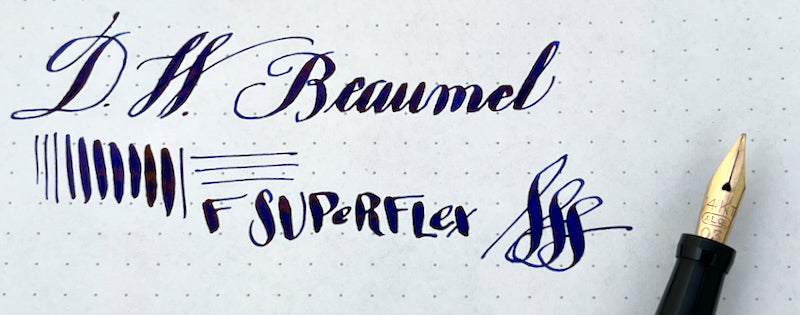 D. W. Beaumel
F SUPeRFLex
14 KT